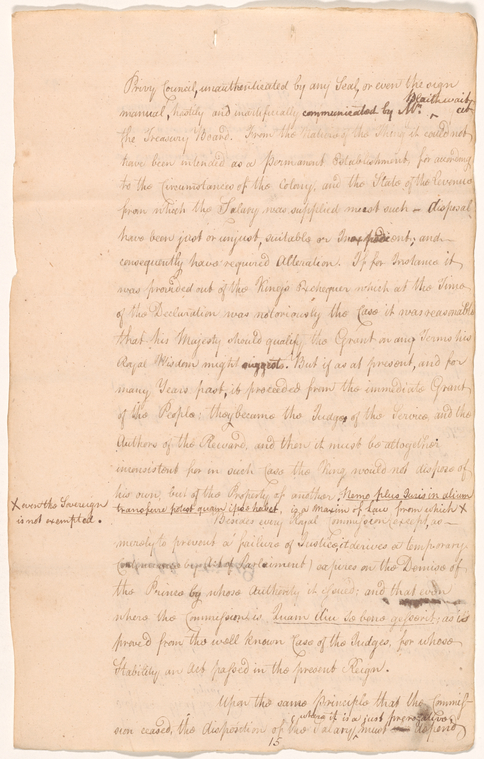 Privy Council, unauthenticated by any Seal, or even the sign
manual, hastily and inartificially communicated by Mr. Blaithwait, at
the Treasury Board. From the Nature of the Thing it could not
have been intended as a Permanent Establishment, for according
to the Circumstances of the Colony, and the State of the Revenue
from which the Salary was supplied must such disposal
have been just or unjust, suitable or Inexpedient, and
consequently have required Alteration. If for Instance it
was provided out of the King's Exchequer which at the Time
of the Declaration was notoriously the Case it was reasonable
that his Majesty should qualify the Grant on any Terms his
Royal Wisdom might suggest. But if as at present, and for
many Years past, it proceeded from the immediate Grant
of the People: they became the Judges of the Service, and the
Authors of the Reward, and then it must be altogether
inconsistent for in such Case the King would not dispose of
his own, but of the Property of another. Nemo plus Juris in alium
transferre potest quam ipse habet, is a Maxim of Law from which X
X even the Sovereign
is not exempted.
Besides every Royal Commission (except, as
merely to prevent a failure of Justice, it derives a temporary
Parliament) expires on the Demise of
the Prince by whose Authority it issued; and that even
where the Commission is Quam diu se bene gesserint; as is
proved from the well known Case of the Judges, for whose
Stability an Act passed in the present Reign.
Upon the same Principle that the Commis-
sion ceased, the disposition of the Salary, where it is a just prerogative, must depend
15